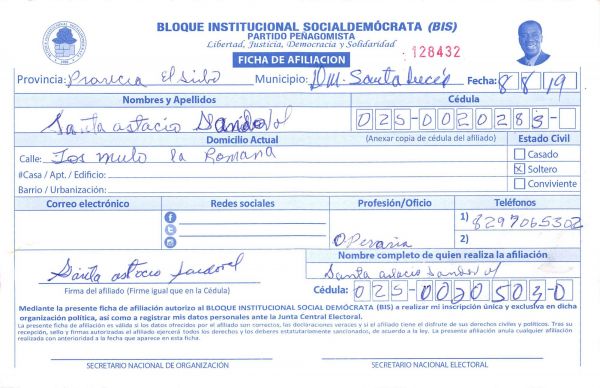 BLOQUE INSTITUCIONAL SOCIALDEMÓCRATA (BIS)
PARTIDO PEÑAGOMISTA
Libertad, Justicia, Democracia y Solidaridad
FICHA DE AFILIACION
128432
Provincia: El Municipio: D.M. Santa Fecha: 8/8/19
Nombres y Apellidos Cédula
Santa astacio Sandovol 025-0020283-
Domicilio Actual (Anexar copia de cédula del afiliado) Estado Civil
Calle: Los mulo la Romana
Casado
#Casa / Apt. / Edificio:
Soltero
Barrio / Urbanización:
Conviviente
Correo electrónico Redes sociales Profesión/Oficio Teléfonos
1) 8297065302
Operaria 2)
Nombre completo de quien realiza la afiliación
Santa astacio Sandoval
Santa astacio Sandovol
Firma del afiliado (Firme igual que en la Cédula) Cédula: 025-0020503-0
Mediante la presente ficha de afiliación autorizo al BLOQUE INSTITUCIONAL SOCIAL DEMÓCRATA (BIS) a realizar mi inscripción única y exclusiva en dicha
organización política, así como a registrar mis datos personales ante la Junta Central Electoral.
La presente ficha de afiliación es válida si los datos ofrecidos por el afiliado son correctos, las declaraciones veraces y si el afiliado tiene el disfrute de sus derechos civiles y políticos. Tras su
recepción, sello y firmas autorizadas el afiliado ejercerá todos los derechos y los deberes estatutariamente sancionados, de acuerdo a la ley. La presente afiliación anula cualquier afiliación
realizada con anterioridad a la fecha que aparece en esta ficha.
SECRETARIO NACIONAL DE ORGANIZACIÓN SECRETARIO NACIONAL ELECTORAL